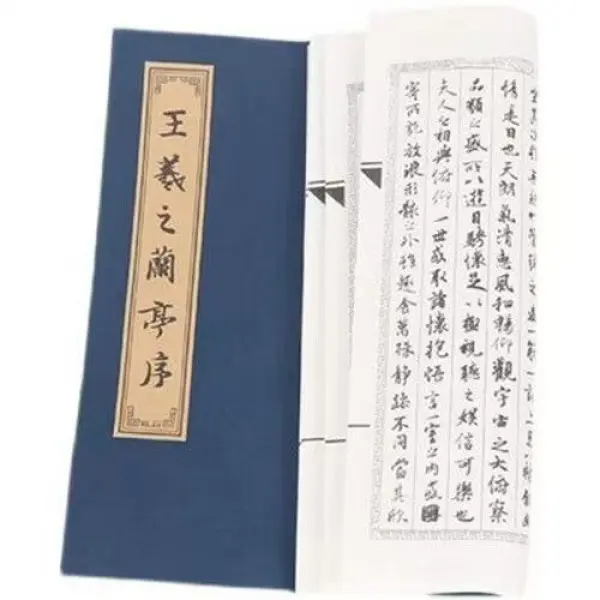 王羲之蘭亭序
情是日也天朗氣清惠風和暢仰觀宇宙之大俯察
品類之盛所以遊目騁懷足以極視聽之娛信可樂也
夫人之相與俯仰一世或取諸懷抱悟言一室之內或因
寄所託放浪形骸之外雖趣舍萬殊靜躁不同當其欣